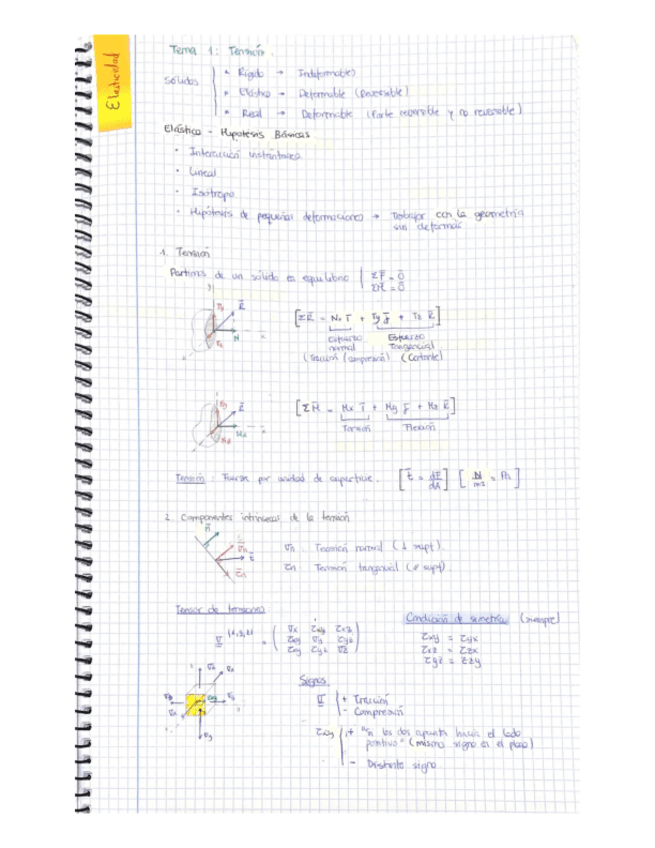 Elasticidad
Tema 1: Tensión.
Sólidos
• Rígido → Indeformables
• Elástico → Deformable (Reversible)
• Real → Deformable (Parte reversible y no reversible)
Elástico - Hipótesis Básicas
• Interacción instantánea
• Lineal
• Isótropo
• Hipótesis de pequeñas deformaciones → Trabajar con la geometría
sin deformar
1. Tensión
Partimos de un sólido en equilibrio | ΣF̄ = 0̄
ΣM̄ = 0̄
[ΣR̄ = Nx ī + Ty j̄ + Tz k̄]
Esfuerzo normal
Esfuerzo Tangencial
(Tracción/compresión) (Cortante)
[ΣM̄ = Mx ī + My j̄ + Mz k̄]
Torsión Flexión
Tensión: Fuerza por unidad de superficie. [t̄ = dF̄/dA] [N/m2 = Pa]
2. Componentes intrínsecas de la tensión
σn: Tensión normal (⊥ supf).
τn: Tensión tangencial (∥ supf).
Tensor de tensiones
Condición de simetría (siempre)
τxy = τyx
τxz = τzx
τyz = τzy
Signos
σ + Tracción
- Compresión
τxy + "si los dos apunta hacia el lado
positivo" (mismo signo en el plano)
- Distinto signo